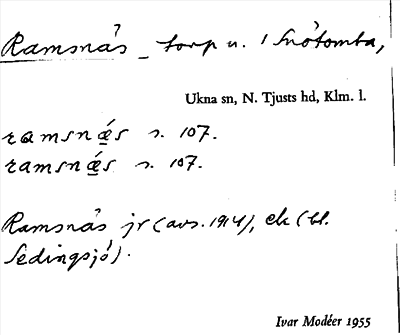 Ramsnäs – torp u. 1 Snötomta,
Ukna sn, N. Tjusts hd, Klm. l.
ramsnǽs s. 107.
ramsnǽs s. 107.
Ramsnäs jr (avs. 1914), ek (bl.
Sedingsjö).
Ivar Modéer 1955